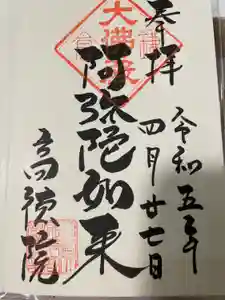 奉拝
令和五年
四月廿七日
大佛殿
阿弥陀如来
高徳院